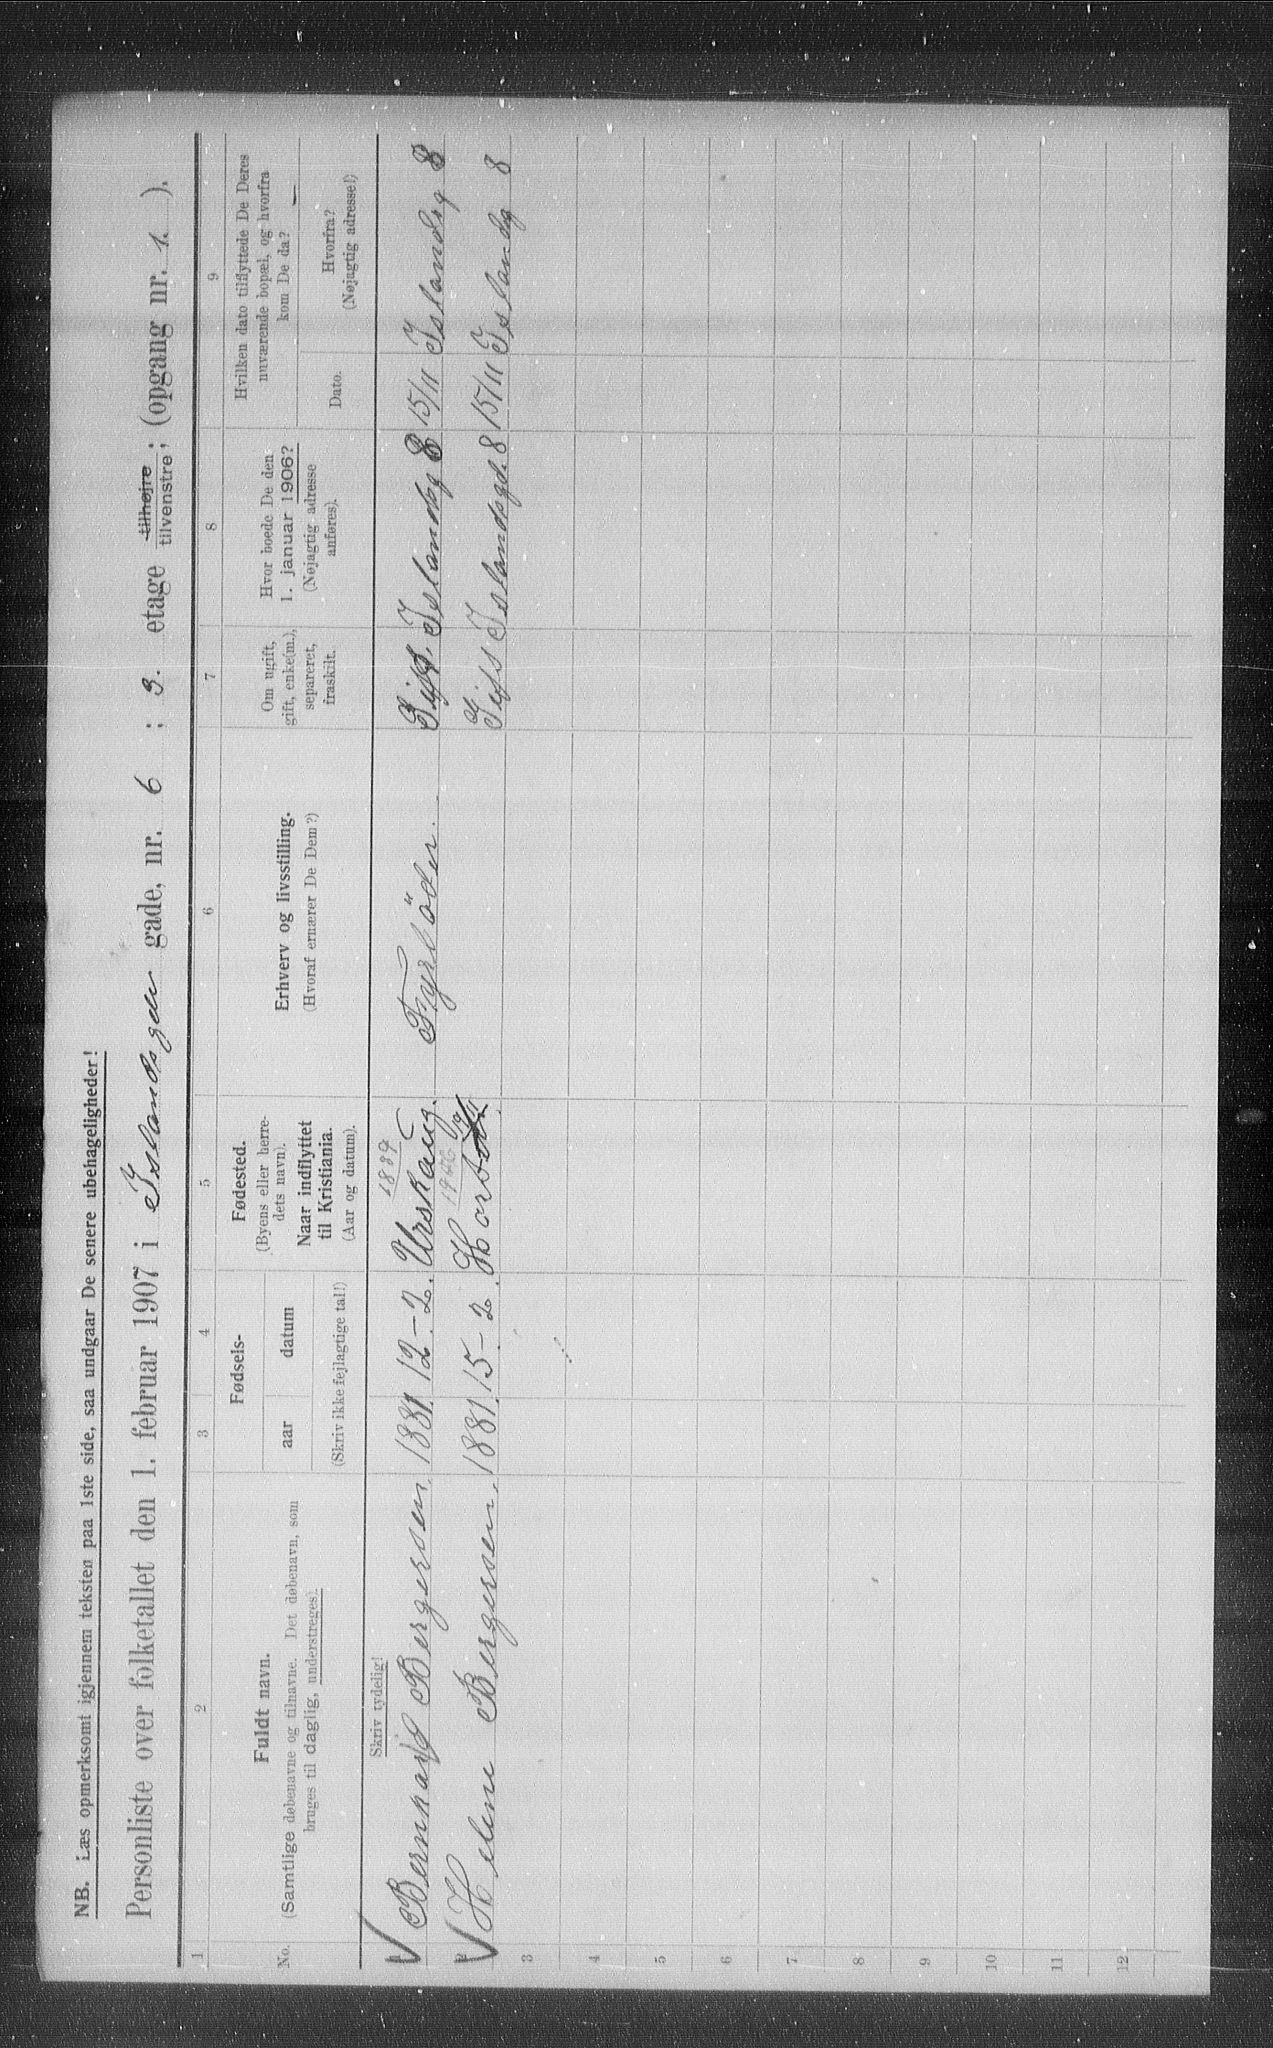 NB. Læs opmerksomt igjennem teksten paa 1ste side, saa undgaar De senere ubehageligheder!
Personliste over folketallet den 1. februar 1907 i Islandsgden gade, nr. 6 ; 3. etage tilhøjre tilvenstre ; (opgang nr. 1. ).
1 2 3 4 5 6 7 8 9
No.
Fuldt navn.
(Samtlige døbenavne og tilnavne. Det døbenavn, som
bruges til daglig, understreges).
Fødsels-
aar datum
(Skriv ikke fejlagtige tal!)
Fødested.
(Byens eller herre-
dets navn).
Naar indflyttet
til Kristiania.
(Aar og datum).
Erhverv og livsstilling.
(Hvoraf ernærer De Dem?)
Om ugift,
gift, enke(m.),
separeret,
fraskilt.
Hvor boede De den
1. januar 1906?
(Nøjagtig adresse
anføres).
Hvilken dato tilflyttede De Deres
nuværende bopæl, og hvorfra
kom De da?
Dato.
Hvorfra?
(Nøjagtig adresse!)
Skriv tydelig!
1889
1 Bernhard Bergersen, 1881. 12-2. Urskaug. Fyrböder. Gift. Islandsg 8 15/11 Islandsg 8
2 Helene Bergersen, 1881. 15-2. Gift Islandsgd. 8 15/11 Islandg 8
3
4
5
6
7
8
9
10
11
12